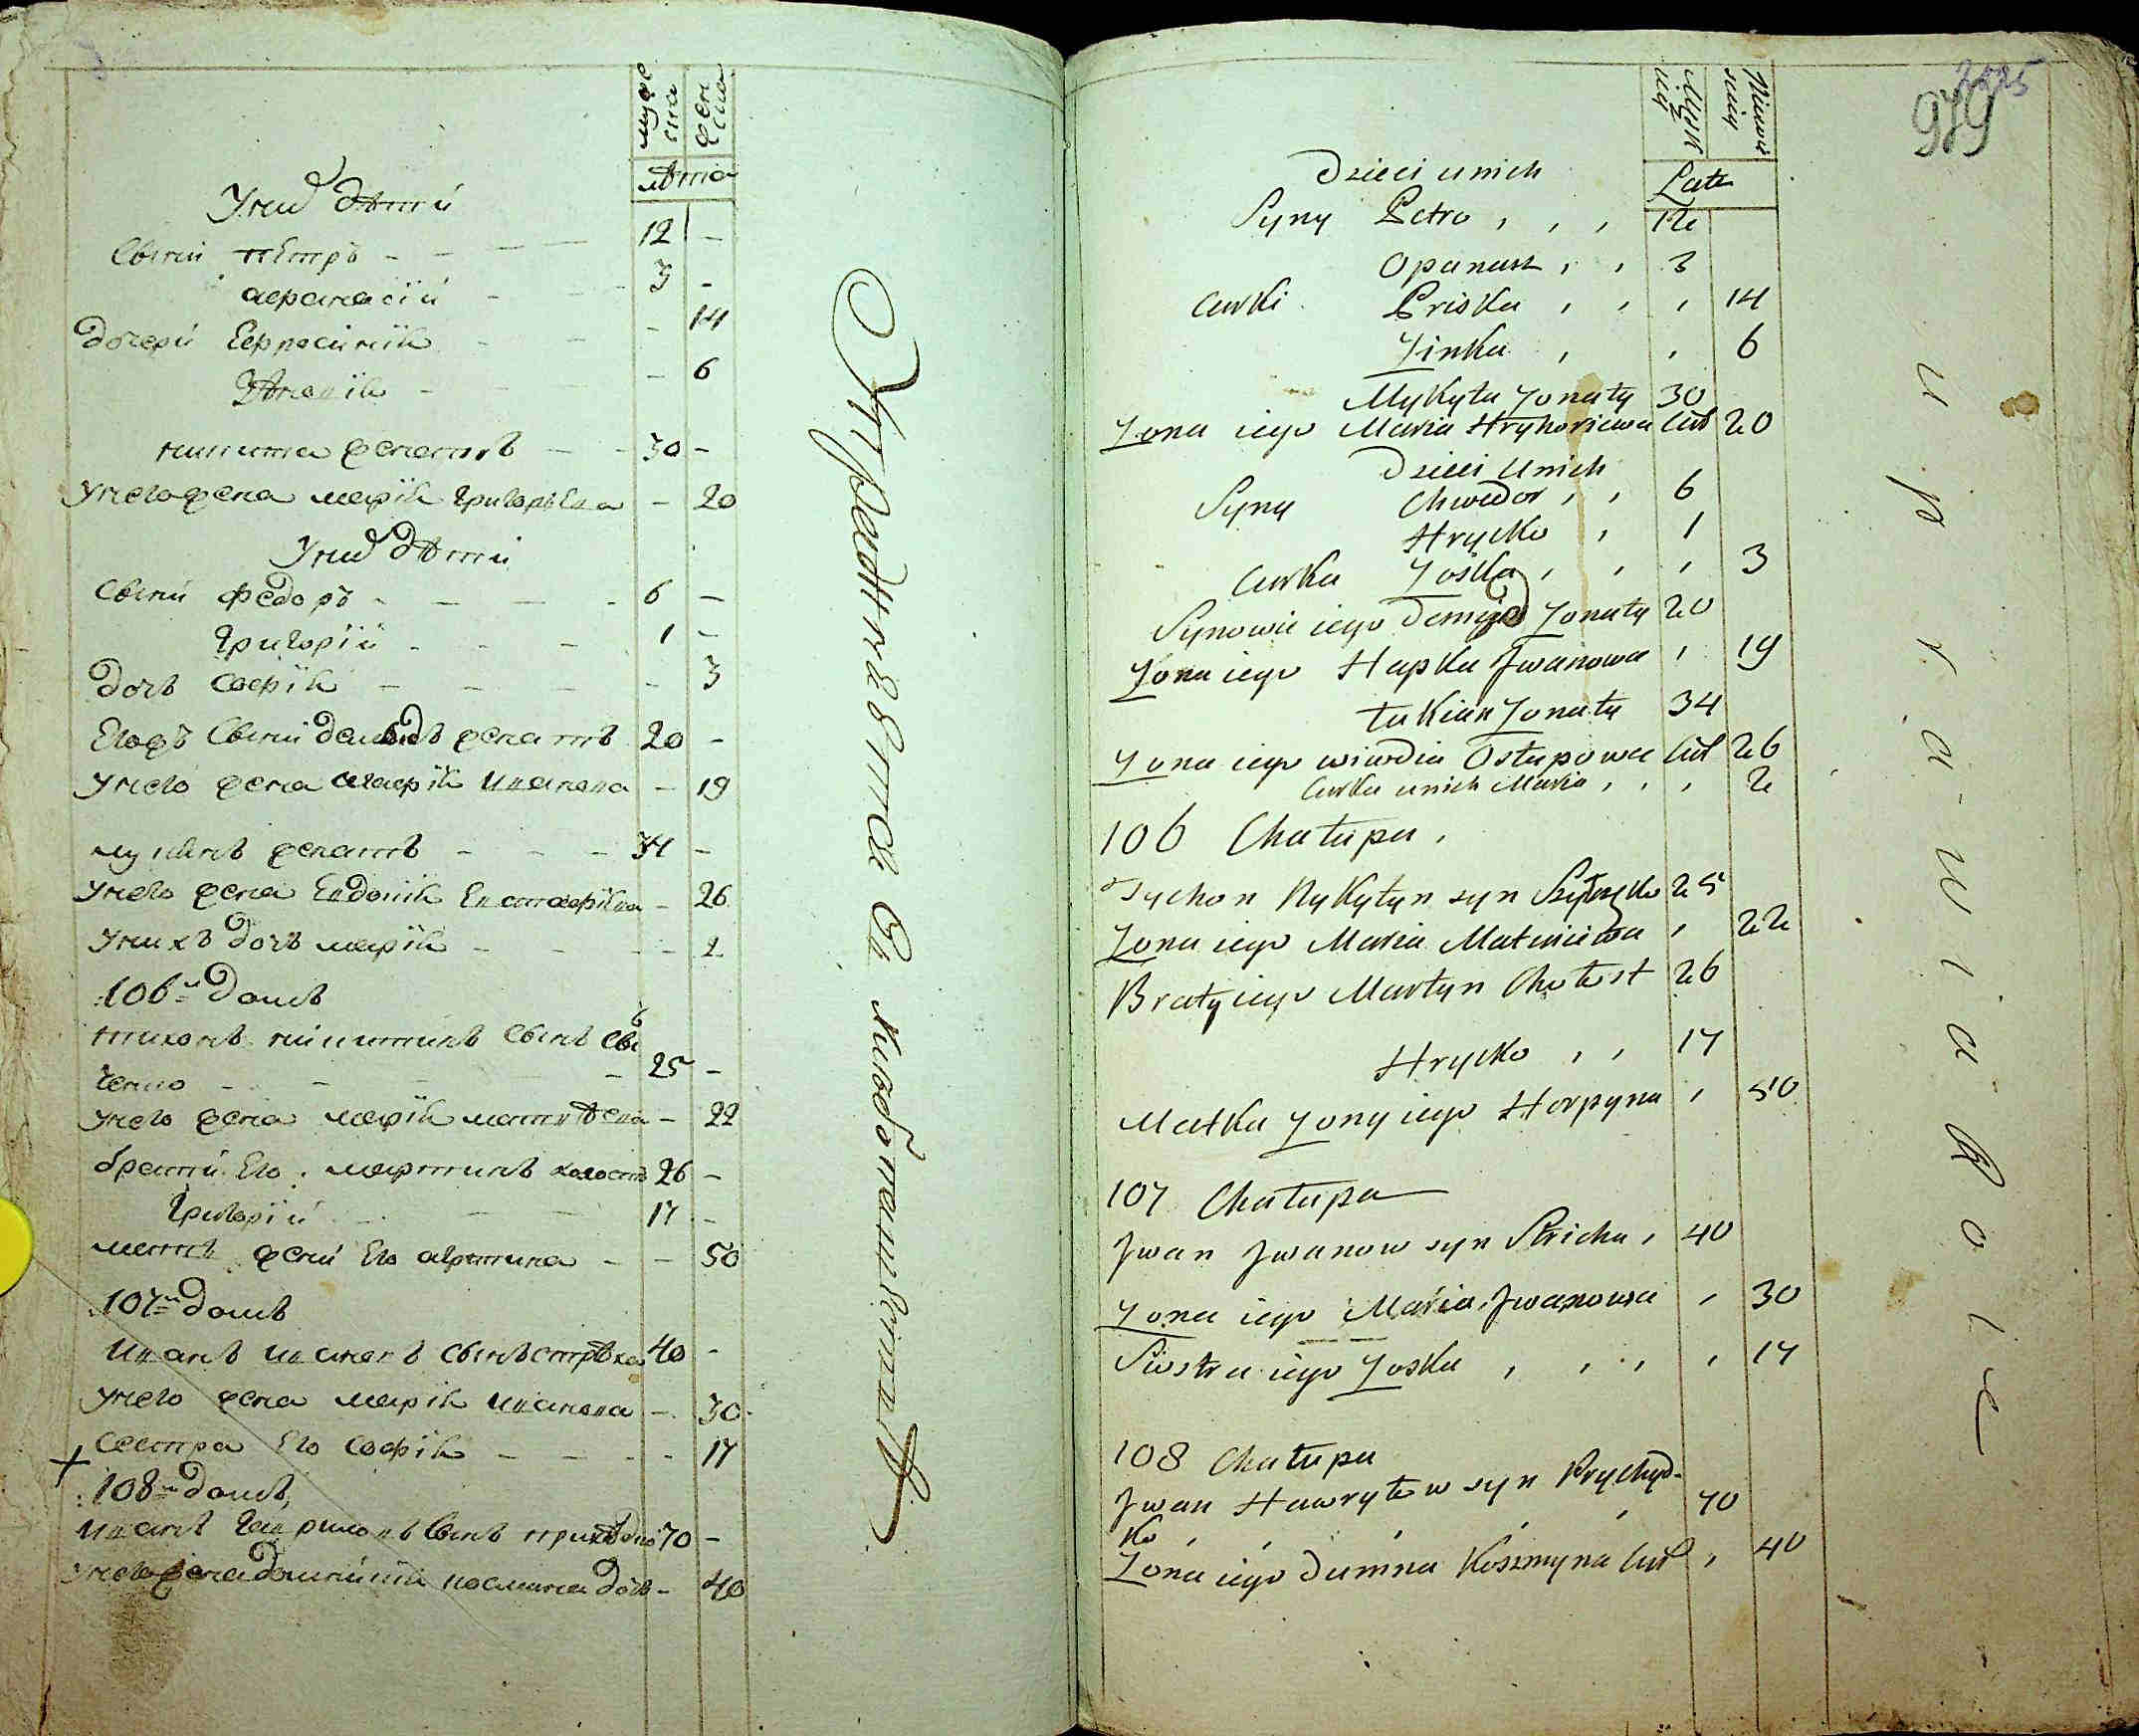 мужеска
женска
лѣта
У них дѣти
Сыни Петръ - - - 12 -
Афанасій - - 3 -
Дочери Ефросинія - - - 14
Зѣновія - - - 6
Никита женатъ - - 30 -
У него жена Марія Григорьева - 20
У них дѣти
Сыни Федоръ - - - 6 -
Григорій - - - 1 -
Дочь Софія - - - - 3
Его жъ Сыни Демидъ женатъ 20 -
У него жена Агафія Иванова - 19
Лукіянъ женатъ - - - 34 -
У него жена Евдокія Евстафіева - 26
У нихъ дочь Марія - - - 2
106й домъ
Тихонъ Никитинъ Сынъ
25 -
У него жена Марія Матвѣева - 22
Брати Его Мартинъ холостъ 26 -
Григорій - - - 17 -
Мать жени Его Агрипина - - 50
107й домъ
Иванъ Ивановъ Сынъ Стрѣха 40 -
У него жена Марія Иванова - 30
Сестра Его Софія - - - - 17
108й домъ
Иванъ Гавриловъ Сынъ 70 -
У него жена Домникія Космина дочь - 40
2425
979
Muzkiy
Niewisciy
Lata
Dzieci u nich
Syny Petro , , , 12
Opanas , , 3
Curki Priska , , , 14
Zinka , , 6
Mykyta Zonaty 30
Zona iego Maria Hryhoriewa Cur 20
Dzieci u nich
Syny Chwedor , , 6
Hrycko , 1
Curka Zoska , , , 3
Synowie iego Demyd Zonaty 20
Zona iego Hapka Jwanowa , 19
Łukian Zonaty 34
Zona iego Ostapowa Cur 26
Curka u nich Maria , , , 2
106 Chałupa ,
Tychon Nykytyn syn 25
Zona iego Maria Matwiiewa , 22
Braty iego Martyn Chołost 26
Hrycko , , 17
Matka Zony iego Horpyna , 50
107 Chałupa
Jwan Jwanow syn Stricha , 40
Zona iego Maria Jwanowa , 30
Siostra iego Zoska , , , , 17
108 Chałupa
Jwan Hawryłow syn Prychyd-
ko , , , , 70
Zona iego Dumna Koszmyna Cur , 40